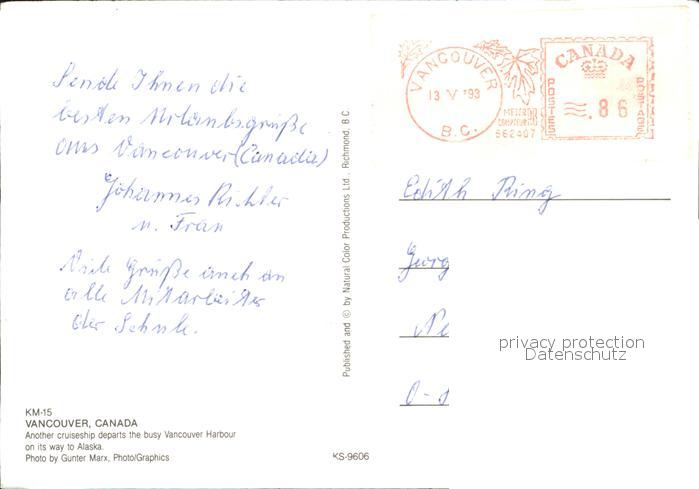 Sende Ihnen die
besten Urlaubsgrüße
aus Vancouver (Canada)
Johannes Richter
u. Frau
Viele Grüße auch an
alle Mitarbeiter
der Schule.
KM-15
VANCOUVER, CANADA
Another cruiseship departs the busy Vancouver Harbour
on its way to Alaska.
Photo by Gunter Marx, Photo/Graphics
Published and © by Natural Color Productions Ltd., Richmond, B C
KS-9606
VANCOUVER
13 V '93
B.C.
METER
562407
CANADA
POSTES
POSTAGE
.86
Edith Ring
Georg
Ne
O-
privacy protection
Datenschutz